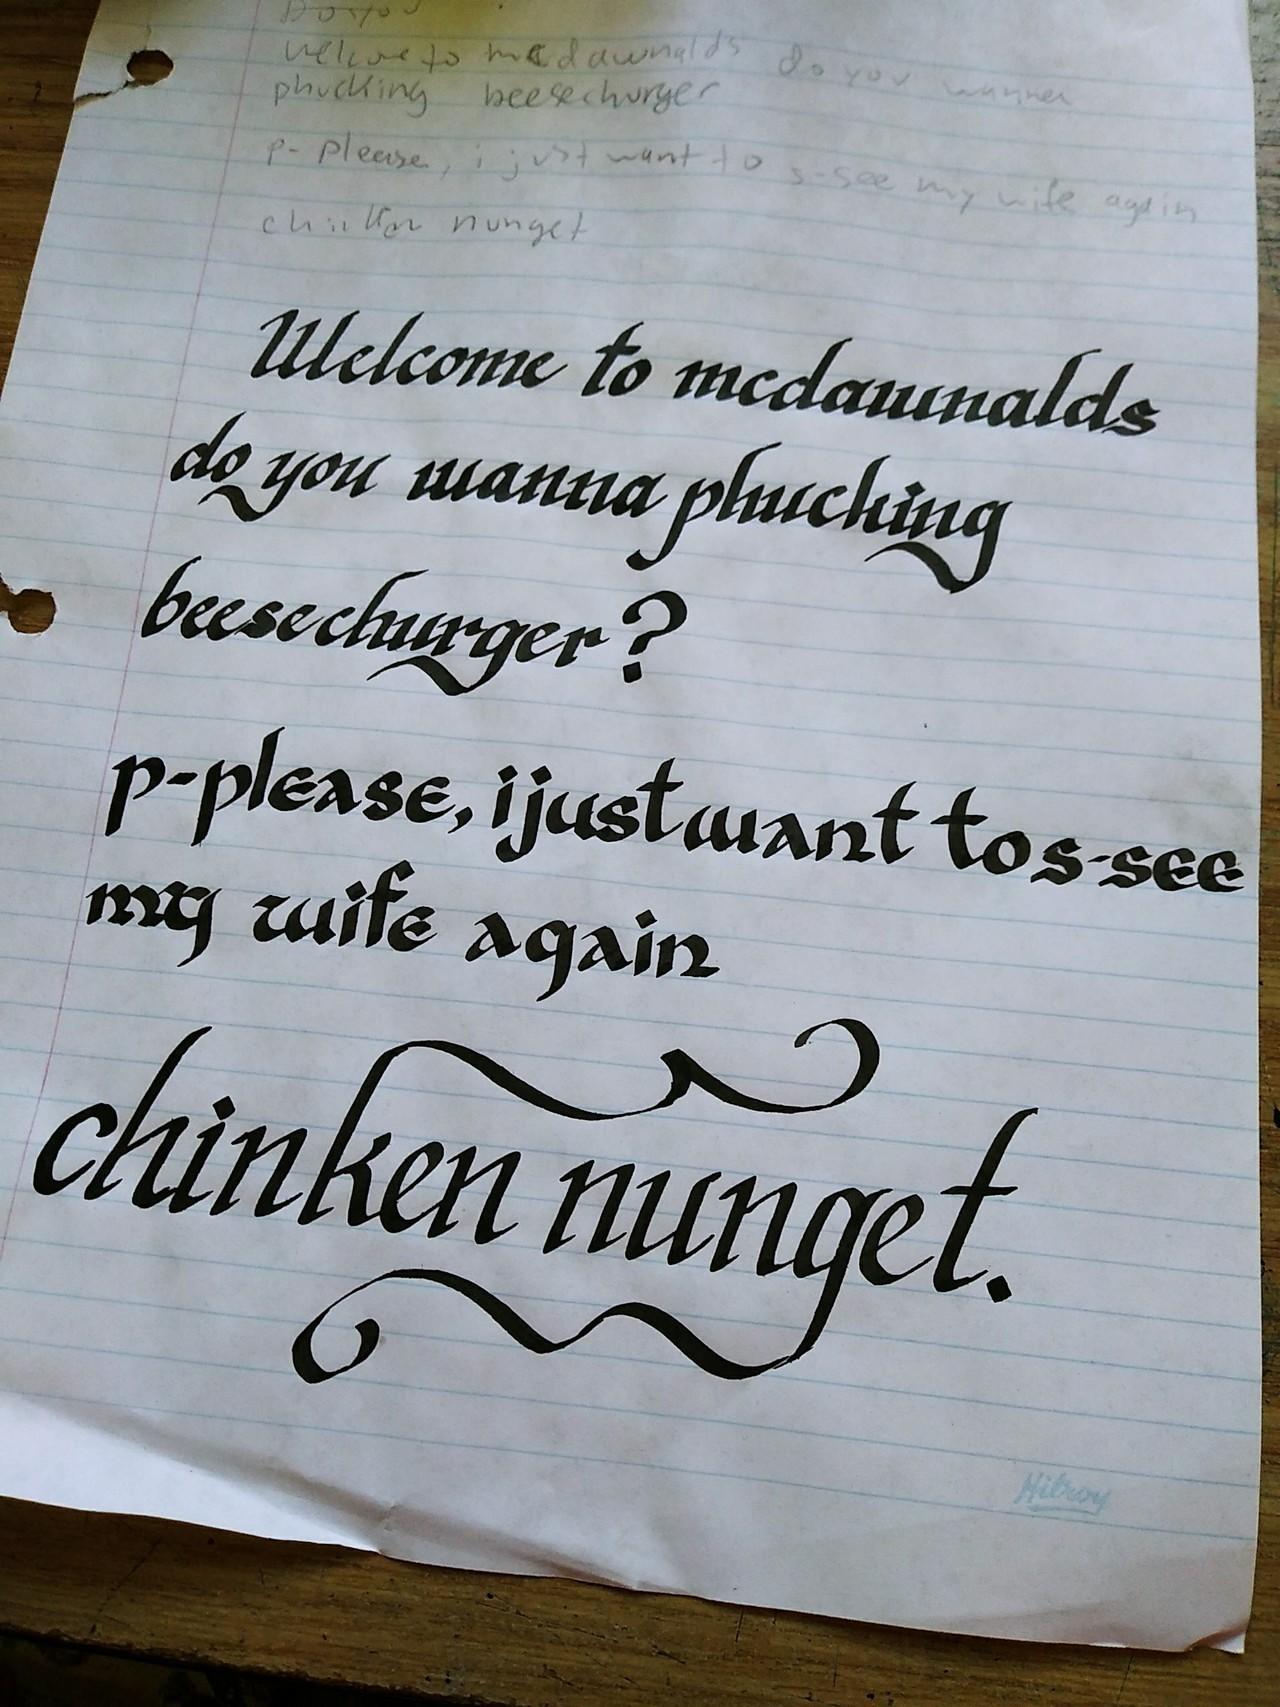 Do you
Welcome to mcdawnalds do you wanna
phucking beesechurger
p- please, i just want to s-see my wife again
chinken nunget
Welcome to mcdawnalds
do you wanna phucking
beesechurger?
p-please, i just want to s-see
my wife again
chinken nunget.
Hilroy